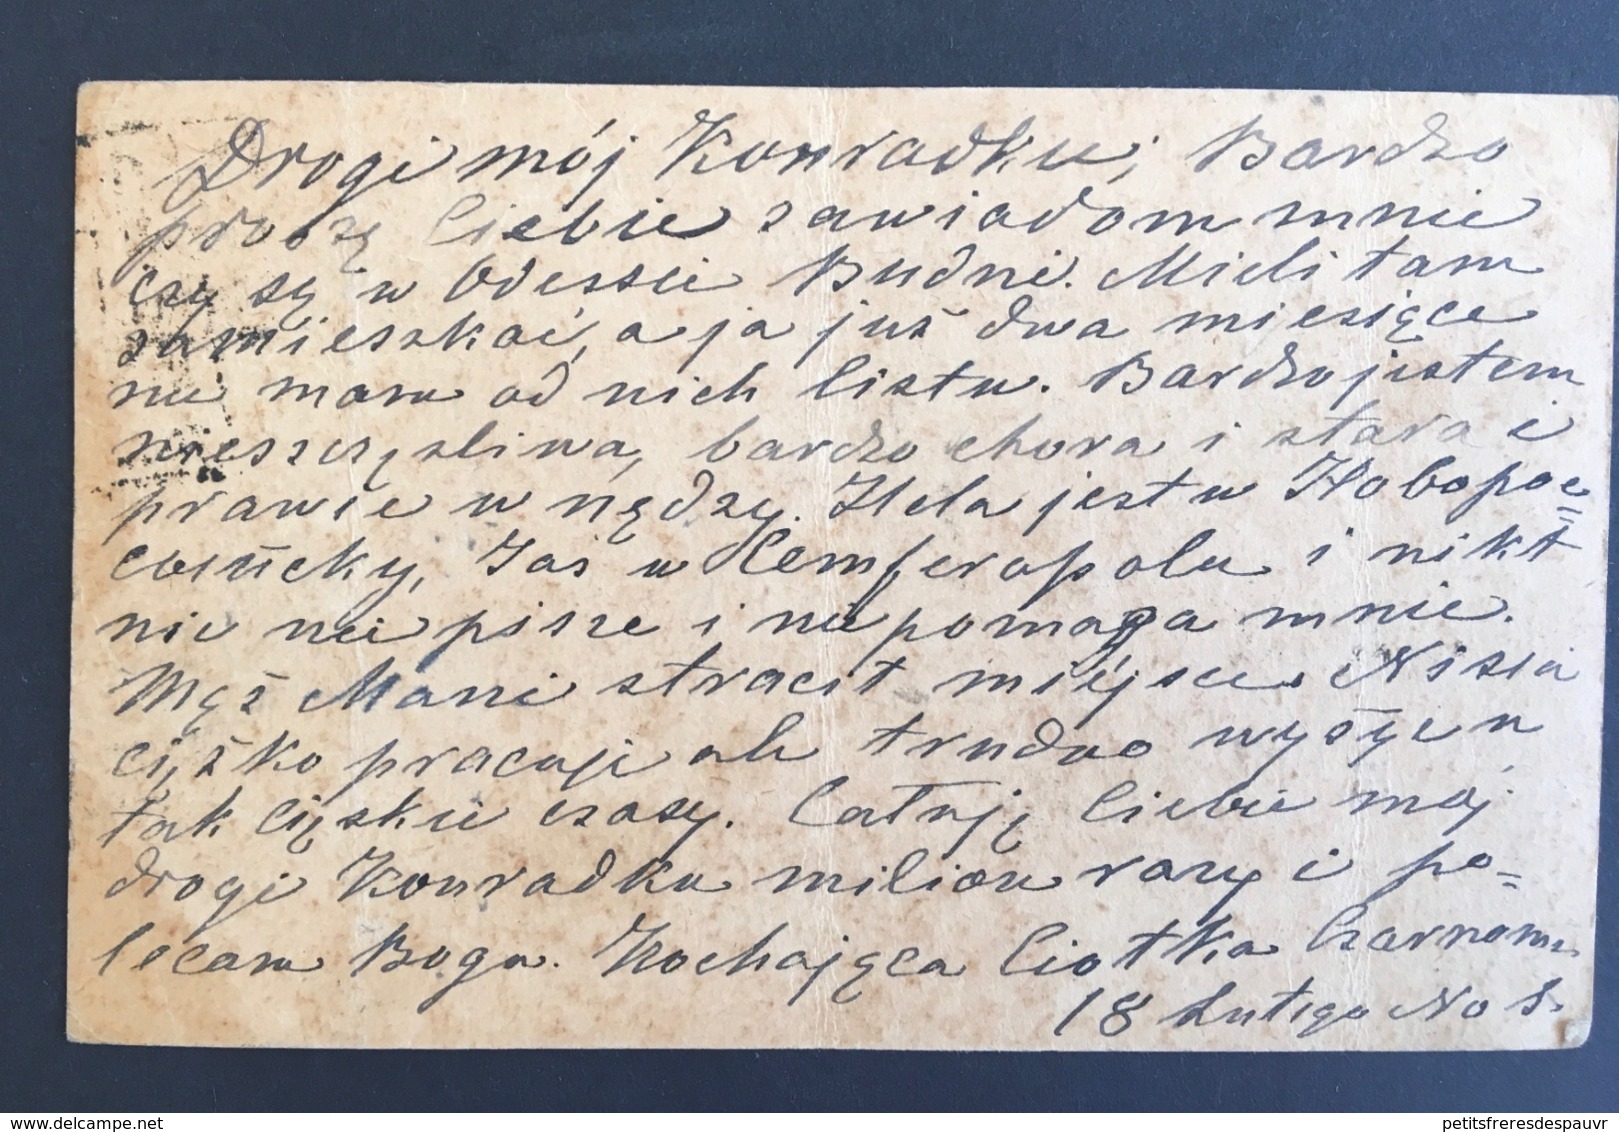 Drogi mój Konradku, Bardzo
proszę Ciebie zawiadom mnie
czy są w Odessie Budni. Mieli tam
zamieszkać, a ja już dwa miesiące
nie mam od nich listu. Bardzo jestem
nieszczęśliwa, bardzo chora i stara i
prawie w nędzy. Hela jest w
Jaś w Semferopolu i nikt
nic nie pisze i nie pomaga mnie.
Mąż Mani stracił miejsce. Nisia
ciężko pracuje ale trudno wyżyć w
tak ciężkie czasy. Całuję Ciebie mój
drogi Konradku milion razy i po=
lecam Bogu. Kochająca Ciotka Czarnom.
18 Lutego No 5.
petitsfreresdespauvr